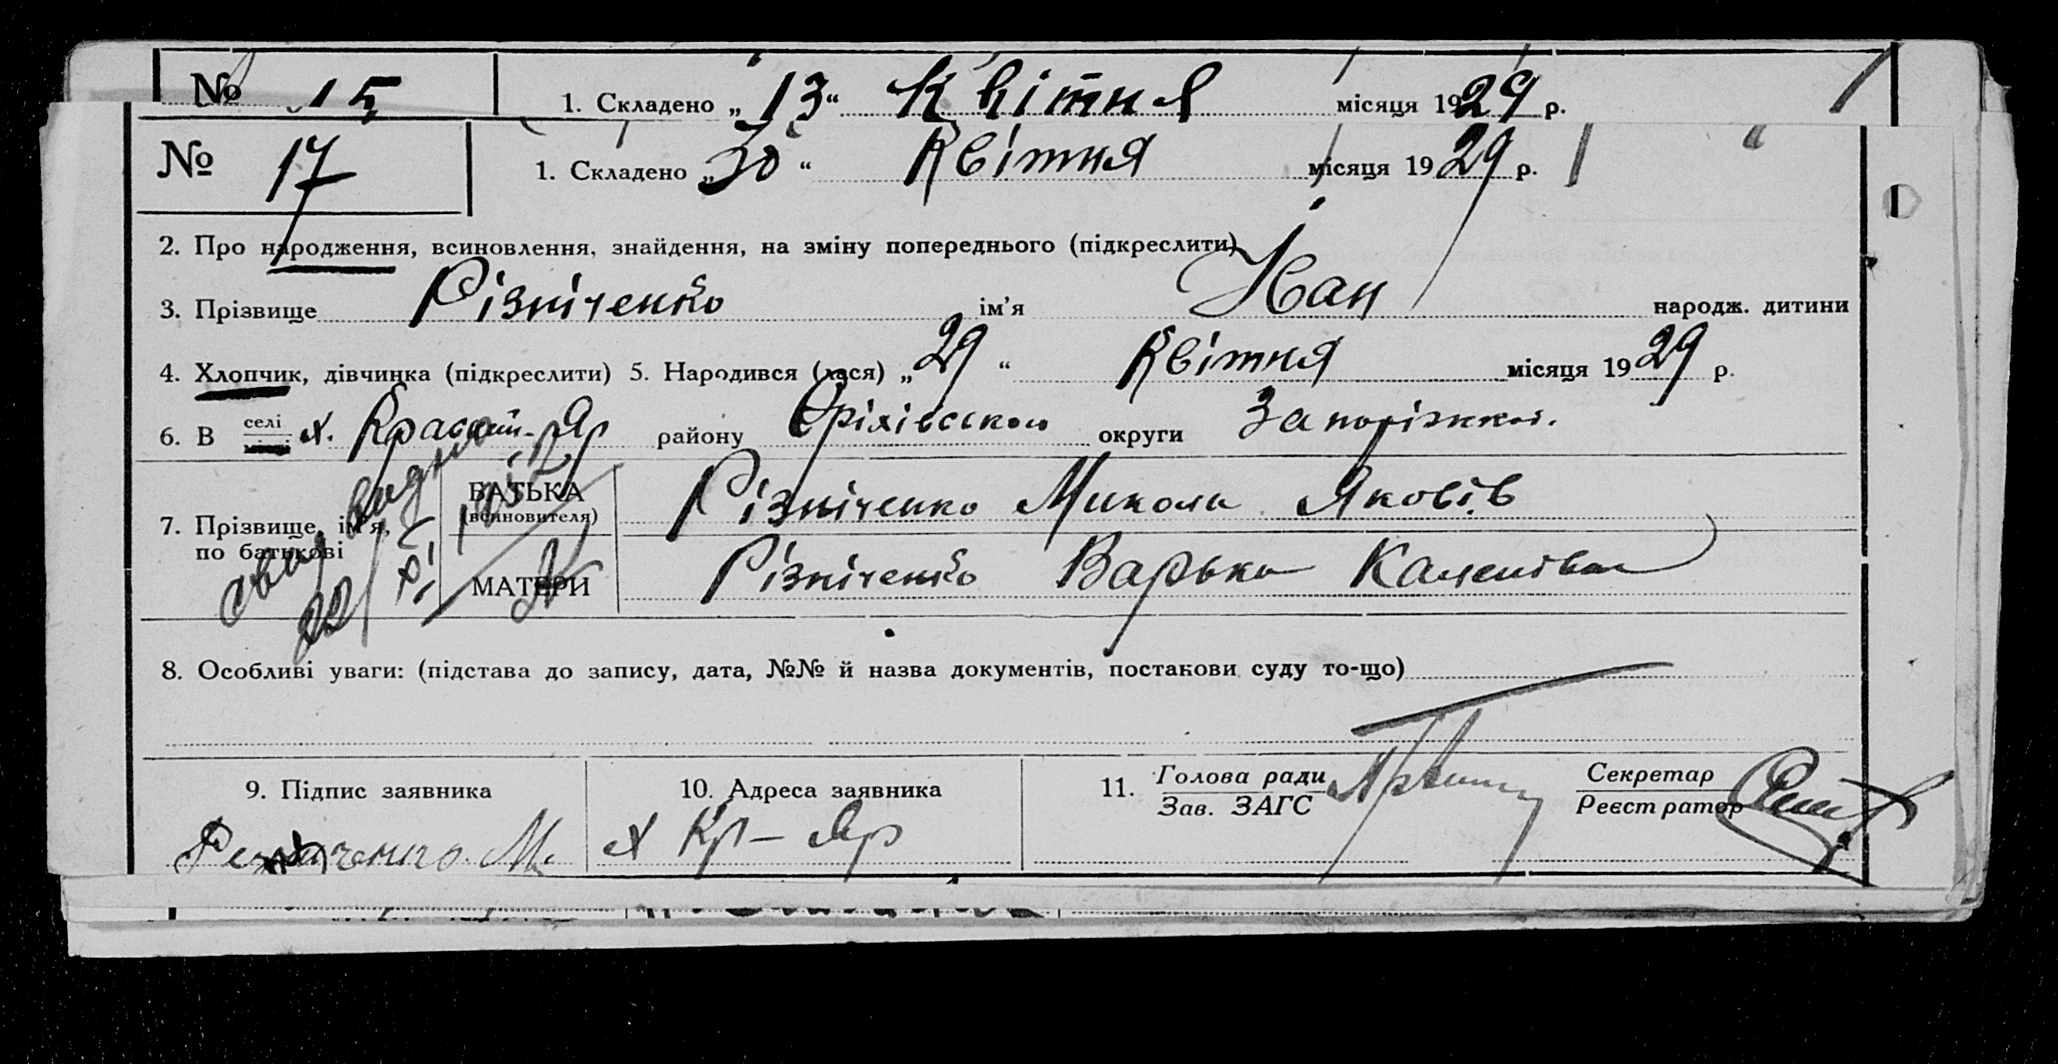 № 15 1. Складено „13“ Квітня місяця 1929 р.
№ 17 1. Складено „30“ Квітня місяця 1929 р.
2. Про народження, всиновлення, знайдення, на зміну попереднього (підкреслити)
3. Прізвище Різніченко ім'я Іван народж. дитини
4. Хлопчик, дівчинка (підкреслити) 5. Народився (лася) „29“ Квітня місяця 1929 р.
6. В селі х. Красний-Яр району округи Запоріжкої.
7. Прізвище, ім'я, по батькові
БАТЬКА (всиновителя) Різніченко Микола Яковів
МАТЕРИ Різніченко Варька
8. Особливі уваги: (підстава до запису, дата, №№ й назва документів, постанови суду то-що)
9. Підпис заявника 10. Адреса заявника 11. Голова ради Зав. ЗАГС Секретар Реєстратор
М. х Кр-Яр